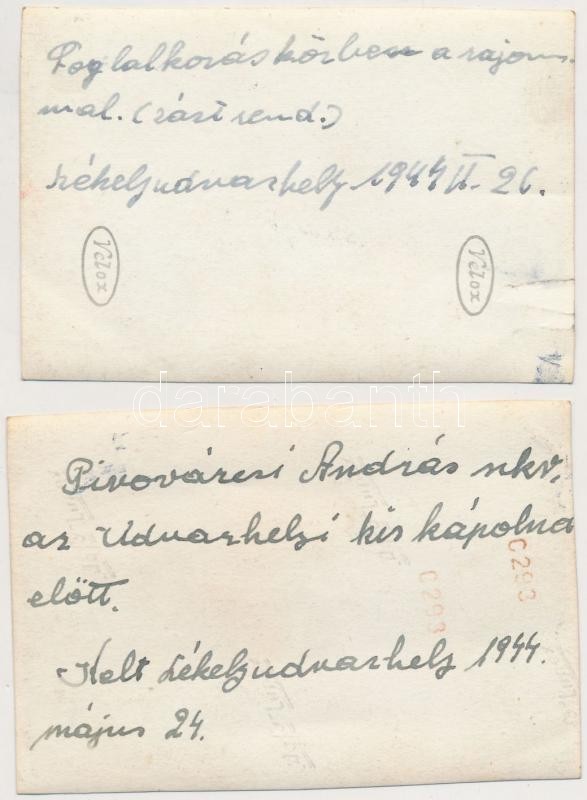 Foglalkozás közben a rajom-
mal. (zárt rend.)
Székelyudvarhely 1944 II. 26.
Velox
Velox
darabanth
Pivovárcsi András szkv.
az Udvarhelyi kis kápolna
előtt.
Kelt Székelyudvarhely 1944.
május 24.
C293
C293